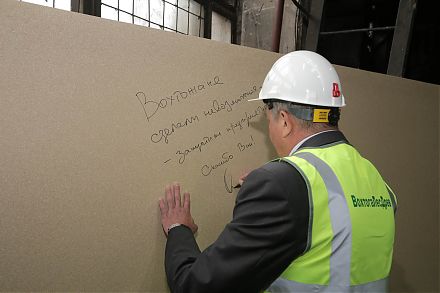 Вохтожане
сделали невозможное
- Запустили
Спасибо Вам!
ВохтогаЛесДрев